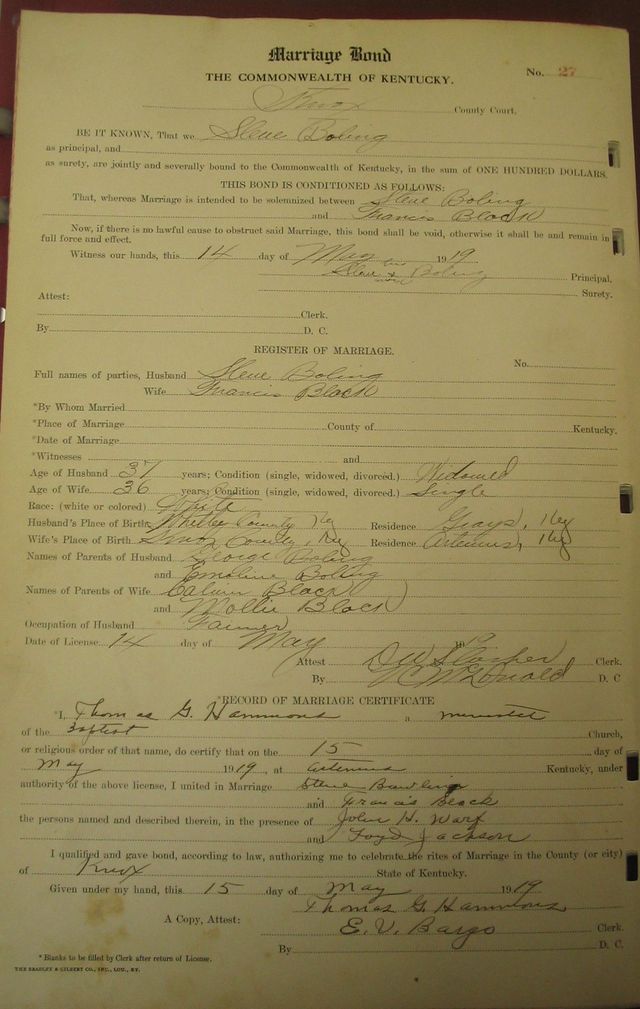 Marriage Bond
THE COMMONWEALTH OF KENTUCKY.
No. 27
Knox County Court.
BE IT KNOWN, That we Steve Boling
as principal, and
as surety, are jointly and severally bound to the Commonwealth of Kentucky, in the sum of ONE HUNDRED DOLLARS.
THIS BOND IS CONDITIONED AS FOLLOWS:
That, whereas Marriage is intended to be solemnized between Steve Boling
and Francis Black
Now, if there is no lawful cause to obstruct said Marriage, this bond shall be void, otherwise it shall be and remain in
full force and effect.
Witness our hands, this 14 day of May 1919
Steve his x mark Boling Principal.
Surety.
Attest:
Clerk.
By D. C.
REGISTER OF MARRIAGE.
No.
Full names of parties, Husband Steve Boling
Wife Francis Black
*By Whom Married
*Place of Marriage County of Kentucky.
*Date of Marriage
*Witnesses and
Age of Husband 37 years; Condition (single, widowed, divorced.) Widowed
Age of Wife 36 years; Condition (single, widowed, divorced.) Single
Race: (white or colored) White
Husband's Place of Birth Whitley County Ky Residence Grays, Ky
Wife's Place of Birth Knox County, Ky Residence Artemus, Ky
Names of Parents of Husband George Boling
and Emoline Boling
Names of Parents of Wife Calvin Black
and Mollie Black
Occupation of Husband Farmer
Date of License 14 day of May 1919
Attest Clerk.
By McDonald D. C
*RECORD OF MARRIAGE CERTIFICATE
*I, Thomas G. Hammons a minister
of the Baptist Church,
or religious order of that name, do certify that on the 15 day of
May 1919, at Artemus Kentucky, under
authority of the above license, I united in Marriage Steve Bowling
and Francis Black
the persons named and described therein, in the presence of John H. Warf
and Foyd Jackson
I qualified and gave bond, according to law, authorizing me to celebrate the rites of Marriage in the County (or city)
of Knox State of Kentucky.
Given under my hand, this 15 day of May 1919
Thomas G. Hammons
A Copy, Attest: E. V. Bargo Clerk.
By D. C.
* Blanks to be filled by Clerk after return of License.
THE BRADLEY & GILBERT CO., INC., LOU., KY.